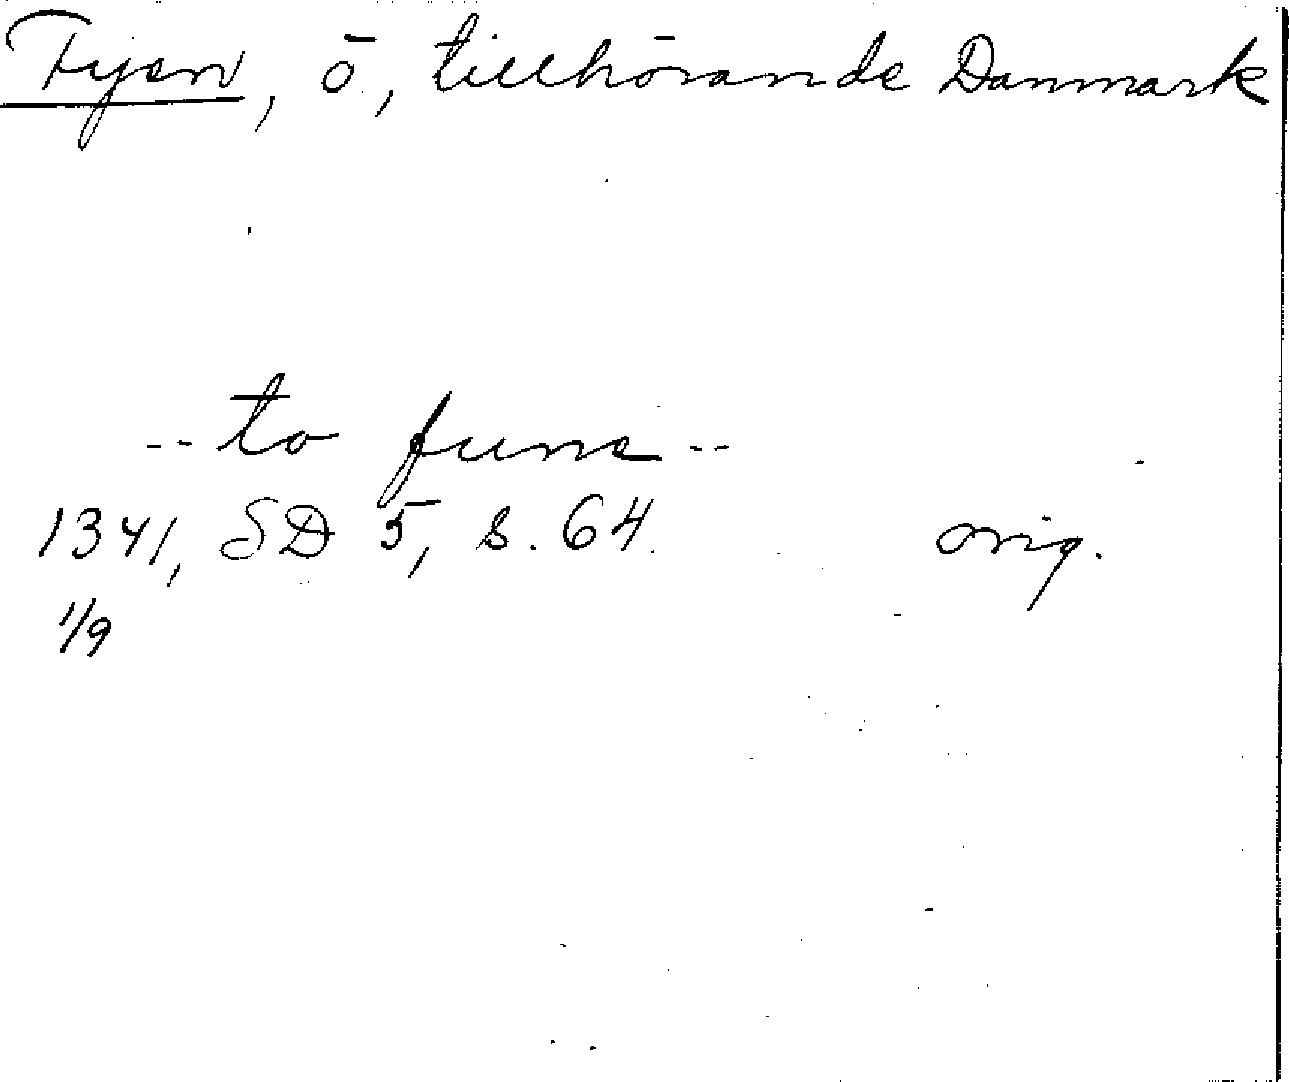 Fyen, ö, tillhörande Danmark
-- to fune --
1341, SD 5, s. 64. orig.
1/9